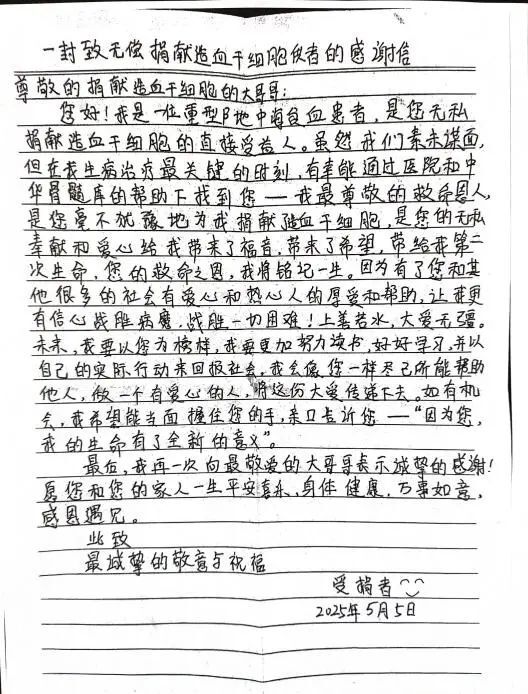 一封致无偿捐献造血干细胞使者的感谢信
尊敬的捐献造血干细胞的大哥哥:
您好!我是一位重型β地中海贫血患者,是您无私
捐献造血干细胞的直接受益人。虽然我们素未谋面,
但在我生病治疗最关键的时刻,有幸能通过医院和中
华骨髓库的帮助下找到您——我最尊敬的救命恩人,
是您毫不犹豫地为我捐献造血干细胞,是您的无私
奉献和爱心给我带来了福音,带来了希望,带给我第二
次生命,您的救命之恩,我将铭记一生。因为有了您和其
他很多的社会有爱心和热心人的厚爱和帮助,让我更
有信心战胜病魔,战胜一切困难!上善若水,大爱无疆。
未来,我要以您为榜样,我要更加努力读书,好好学习,并以
自己的实际行动来回报社会,我会像您一样尽己所能帮助
他人,做一个有爱心的人,将这份大爱传递下去。如有机
会,我希望能当面握住您的手,亲口告诉您——“因为您,
我的生命有了全新的意义”。
最后,我再一次向最敬爱的大哥哥表示诚挚的感谢!
愿您和您的家人一生平安喜乐,身体健康,万事如意,
感恩遇见。
此致
最诚挚的敬意与祝福
受捐者
2025年5月5日